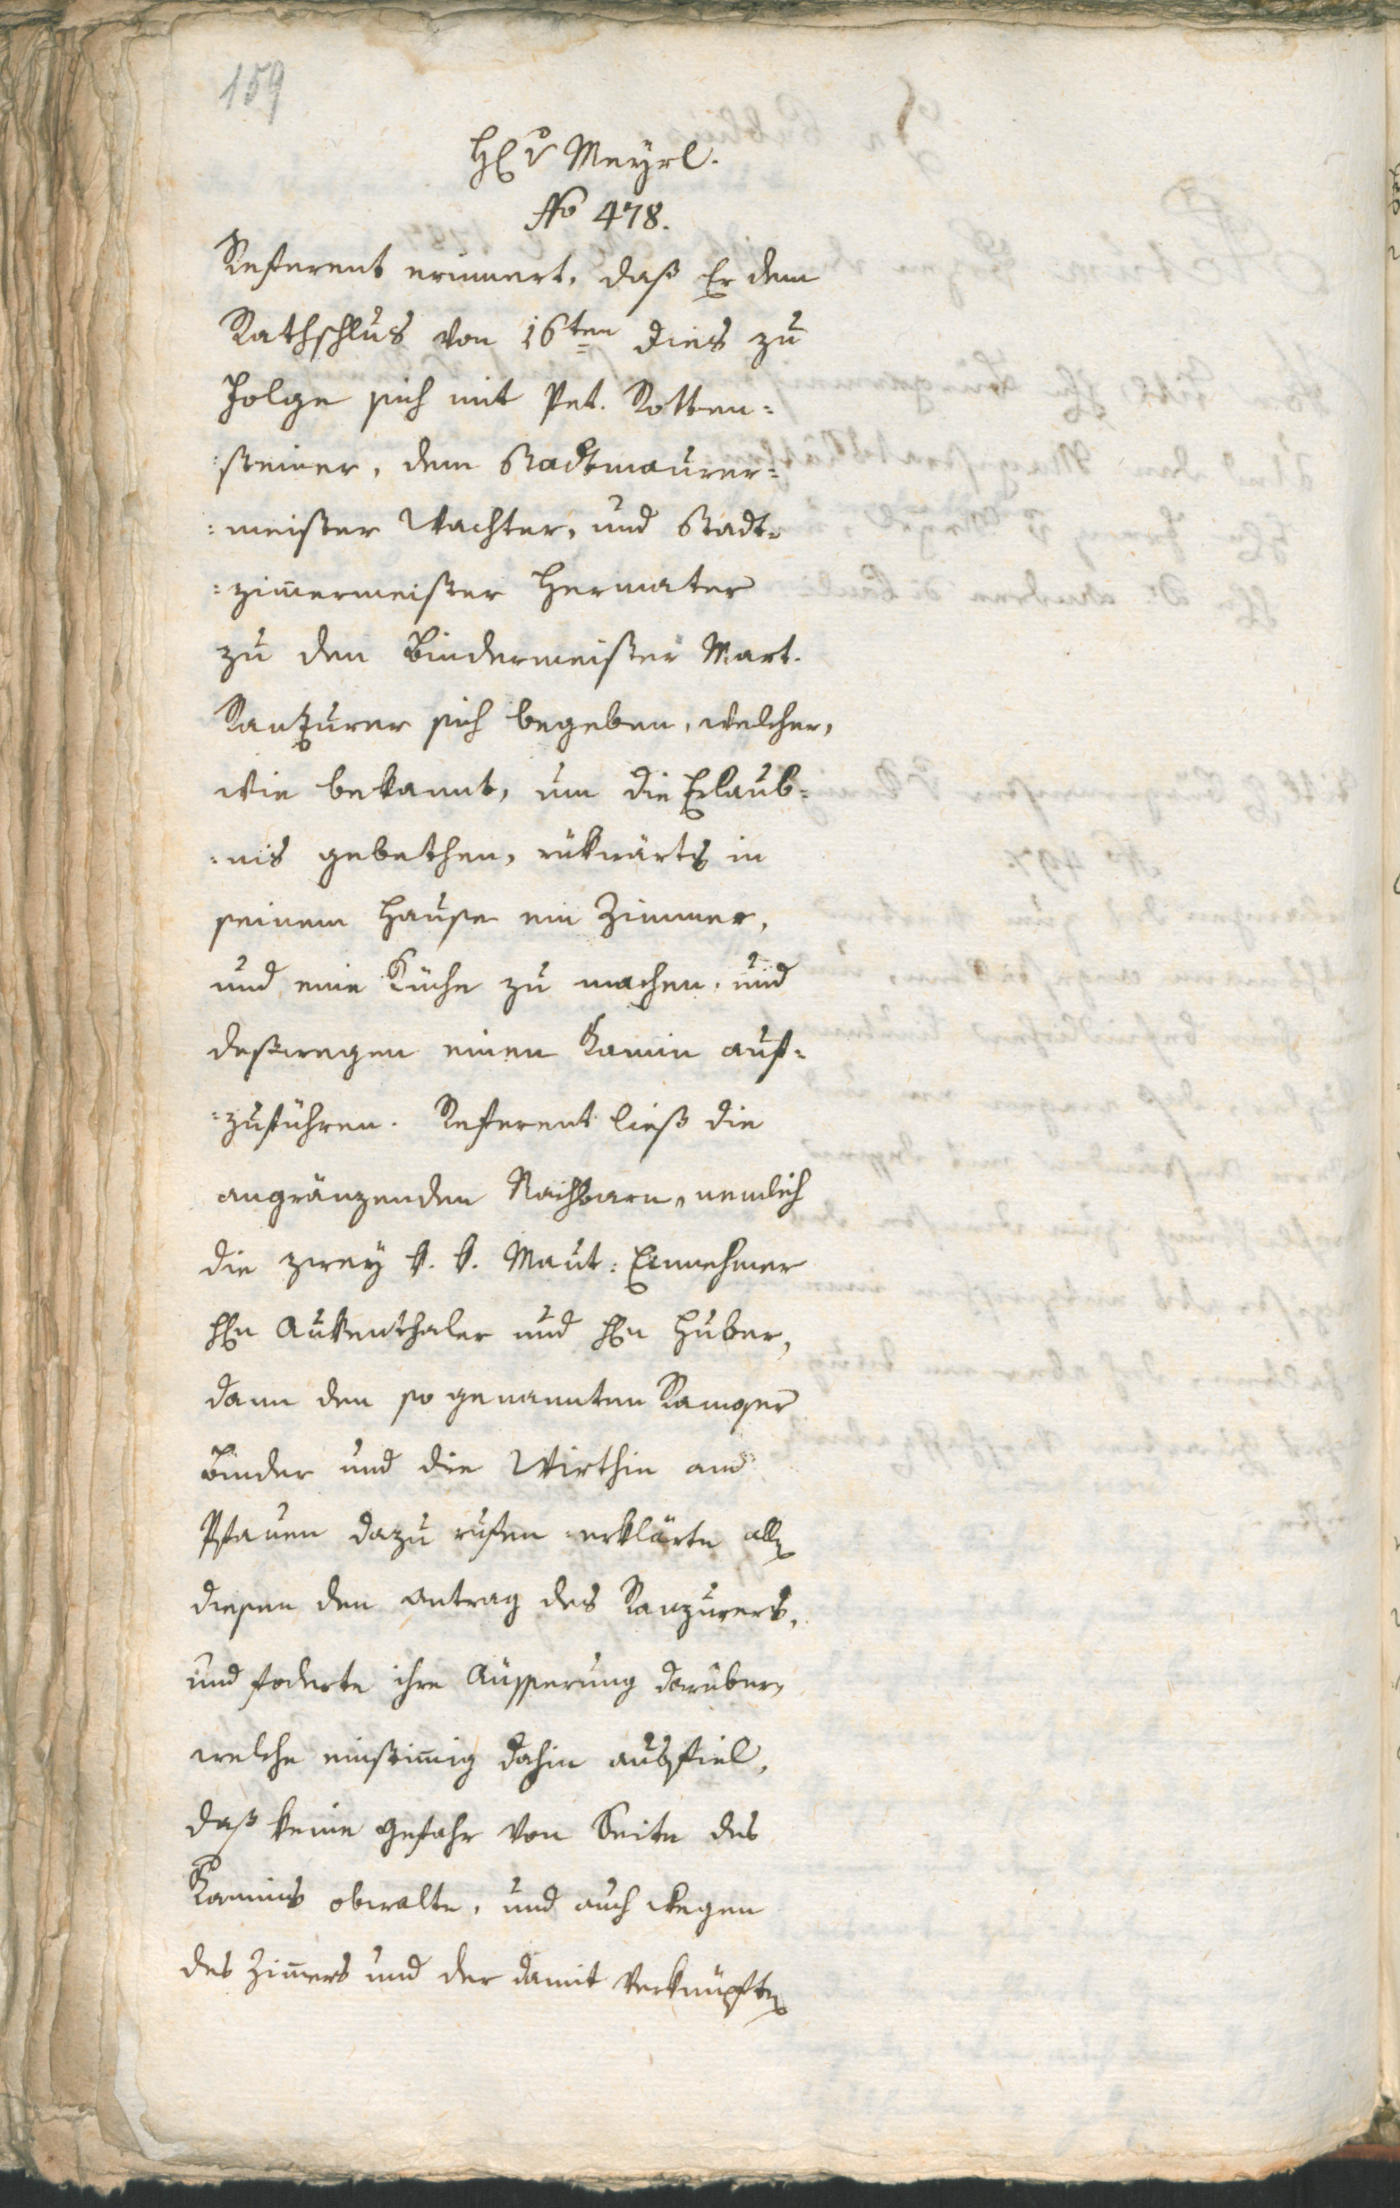 159
H. v Meyrl.
No 478.
Referent erinnert, daß Er dem
Rathschlus von 16ten dies zu
Folge sich mit Pet. Rotten=
=steiner, dem Stadtmaurer=
=meister Wachter, und Stadt=
=zim̄ermeister Hermater
zu den Bindermeister Mart.
Ranzurer sich begeben, welcher,
wie bekannt, um die Erlaub=
=nis gebethen, rükwärts in
seinem Hause ein Zimmer,
und eine Küche zu machen, und
deßwegen einen Kamin auf=
=zuführen. Referent ließ die
angränzenden Nachbarn, nemlich
die zwey k. k. Maut=Einnehmer
Hn Aukenthaler und Hn Huber,
dann den so genannten Ramoser
Binder und die Wirthin am
Pfauen dazu rufen erklärte allen
diesen den Antrag des Ranzurers,
und foderte ihre Äusserung darüber,
welche einstim̄ig dahin ausfiel,
daß keine Gefahr von Seite des
Kamins obwalte, und auch wegen
des Zim̄ers und der damit verknüpften